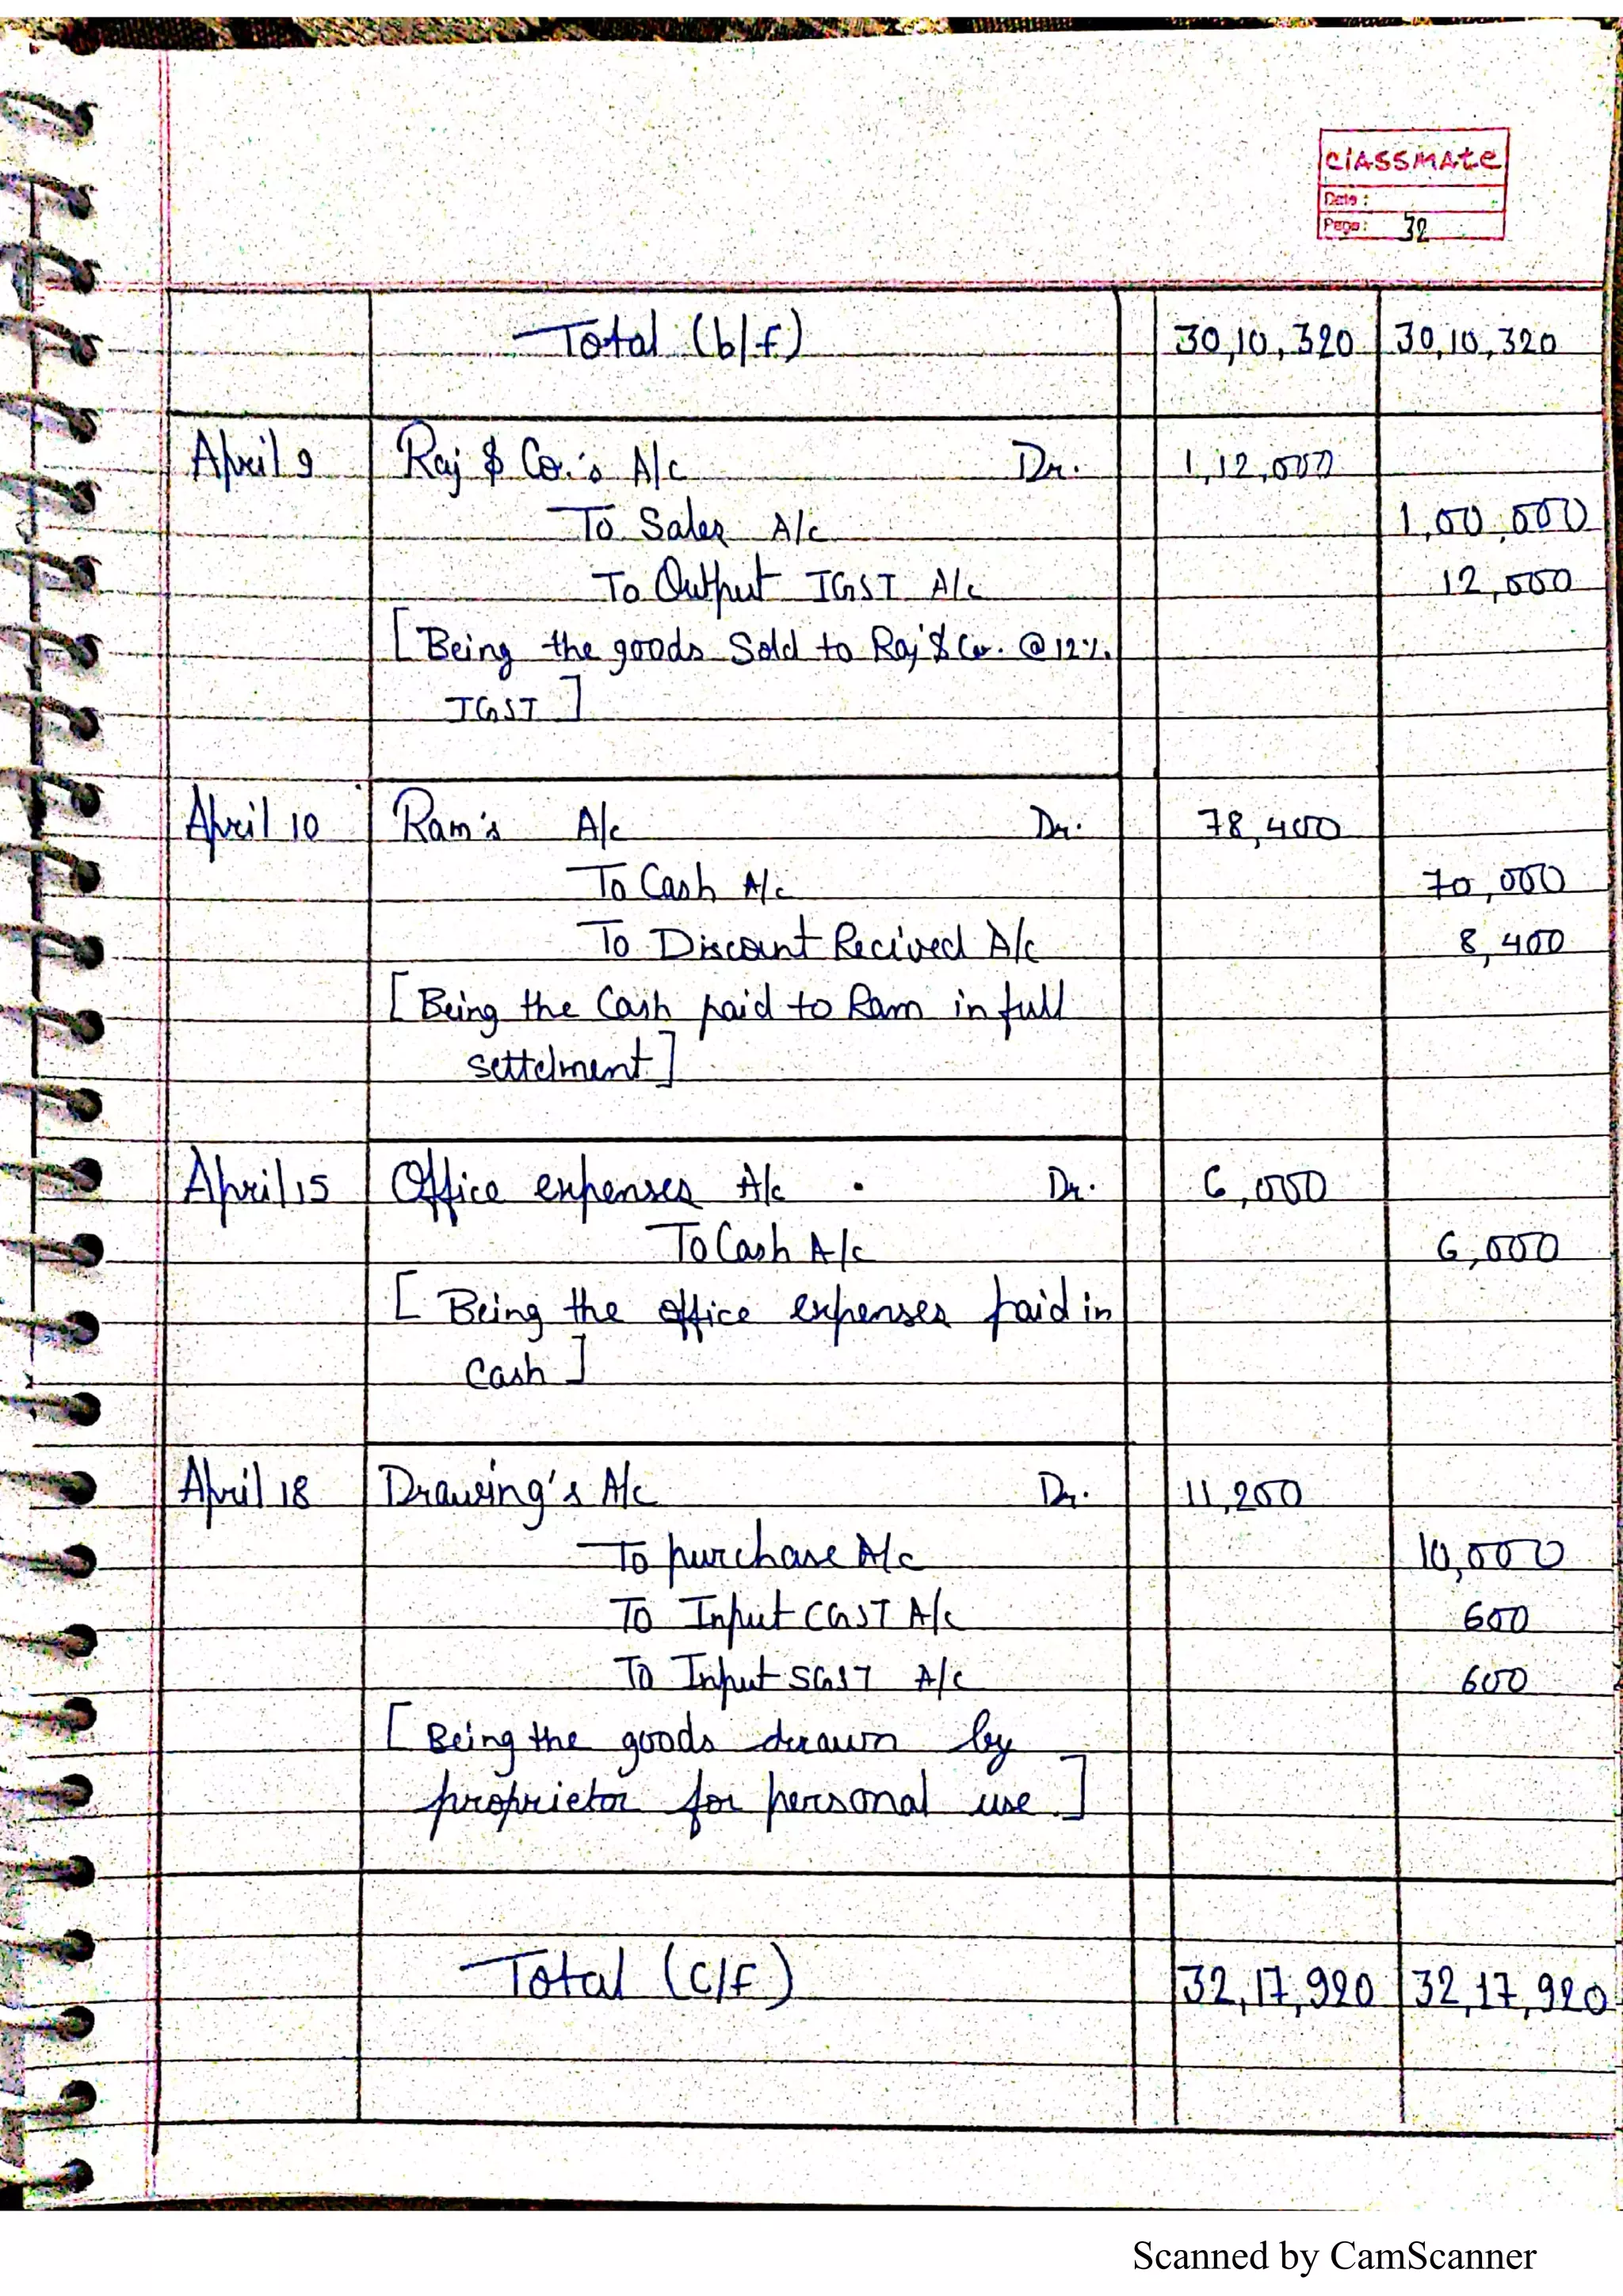 classmate
Date :
Page : 32
Total (b/f) 30,10,320 30,10,320
April 9 Raj & Co.'s A/c Dr. 1,12,000
To Sales A/c 1,00,000
To Output IGST A/c 12,000
[Being the goods Sold to Raj & Co. @ 12%
IGST]
April 10 Ram's A/c Dr. 78,400
To Cash A/c 70,000
To Discount Recived A/c 8,400
[Being the Cash paid to Ram in full
settelment]
April 15 Office expenses A/c Dr. 6,000
To Cash A/c 6,000
[Being the office expenses paid in
Cash]
April 18 Drawing's A/c Dr. 11,200
To purchase A/c 10,000
To Input CGST A/c 600
To Input SGST A/c 600
[Being the goods drawn by
proprietor for personal use]
Total (C/F) 32,17,920 32,17,920
Scanned by CamScanner